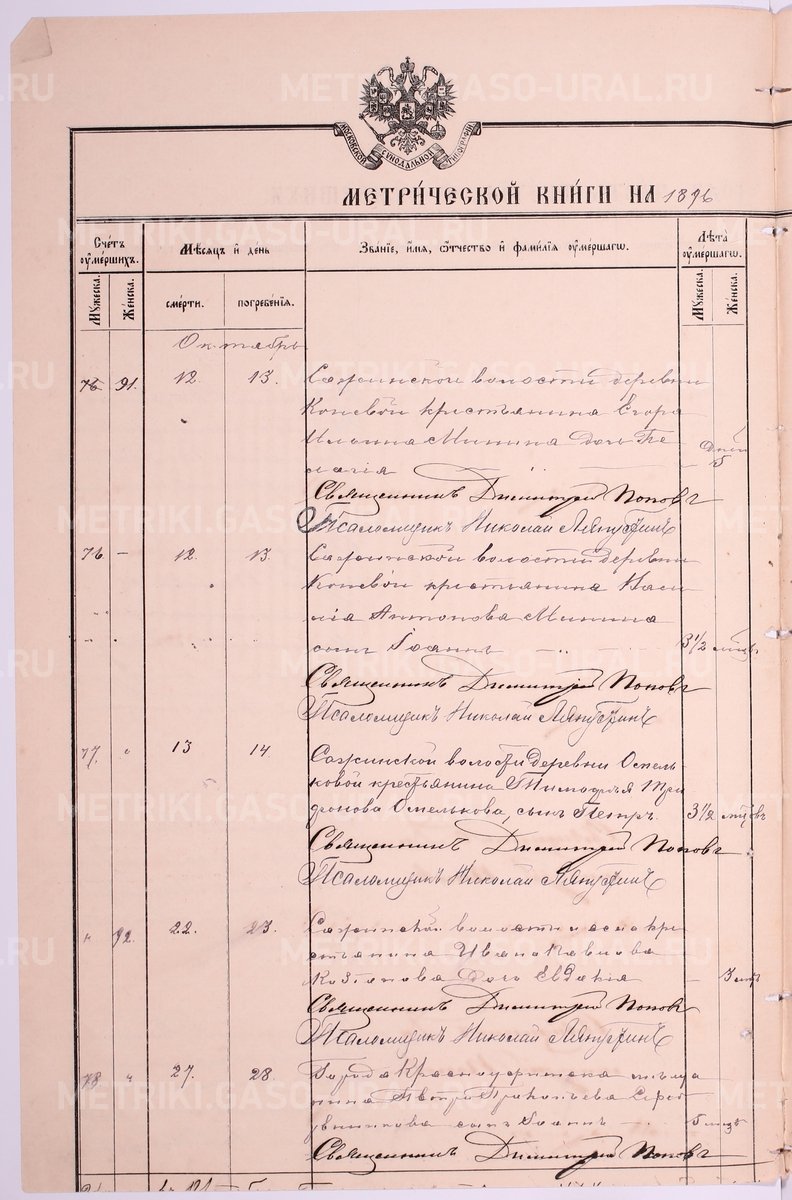 МОСКОВСКОЙ СУНОДАЛЬНОЙ ТИПОГРАФІИ
МЕТРИ́ЧЕСКОЙ КНИ́ГИ НА 1896
Сче́тъ ᲂумершихъ.
Мꙋжеска.
Же́нска.
Мѣ́сяцъ и҆ де́нь
сме́рти.
погребе́нїѧ.
Зва́нїе, и҆́мѧ, ѻ҆́тчество и҆ фами́лїѧ ᲂуме́ршагѡ.
Лѣ́та ᲂуме́ршагѡ.
Мꙋжеска.
Же́нска.
Октябрь
76 91. 12. 13. Сажинской волости деревни
Коневой крестьянина Егора
Ильина Минина дочь Пе-
лагія — дней 5
Священникъ Димитрій Поповъ
Псаломщикъ Николай Ляпустинъ
76 — 12. 13. Сажинской волости деревни
Коневой крестьянина Васи
лія Антонова Минина
сынъ Іоаннъ 3 1/2 мѣцъ
Священникъ Димитрій Поповъ
Псаломщикъ Николай Ляпустинъ
77. " 13 14. Сажинской волости деревни Омель-
ковой крестьянина Тимофѣя Три
фонова Омелькова, сынъ Петръ. 3 1/2 мцовъ
Священникъ Димитрій Поповъ
Псаломщикъ Николай Ляпустинъ
" 92. 22. 23. Сажинской волости и села кре
стьянина Ивана Павлова
дочь Евдокія — 3 мцъ
Священникъ Димитрій Поповъ
Псаломщикъ Николай Ляпустинъ
78 " 27. 28. Города Красноуфимска мѣща
нина Петра Прокопьева Сереб
рянникова сынъ Іоаннъ 5 мцъ
Священникъ Димитрій Поповъ
METRIKI.GASO-URAL.RU